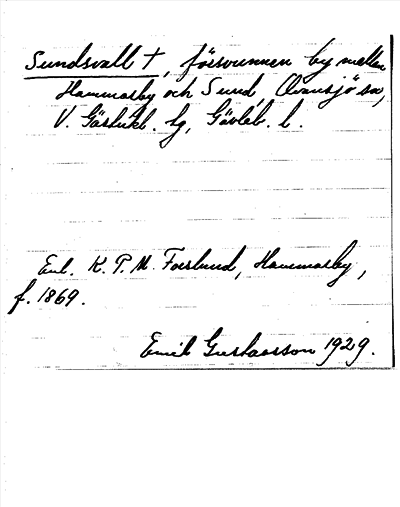 Sundsvall †, försvunnen by mellan
Hammarby och Sund, Ovansjö sn,
V. Gästrikl. tg, Gävleb. l.
Enl. K. P. M. Forslund, Hammarby,
f. 1869.
Emil Gustavsson 1929.